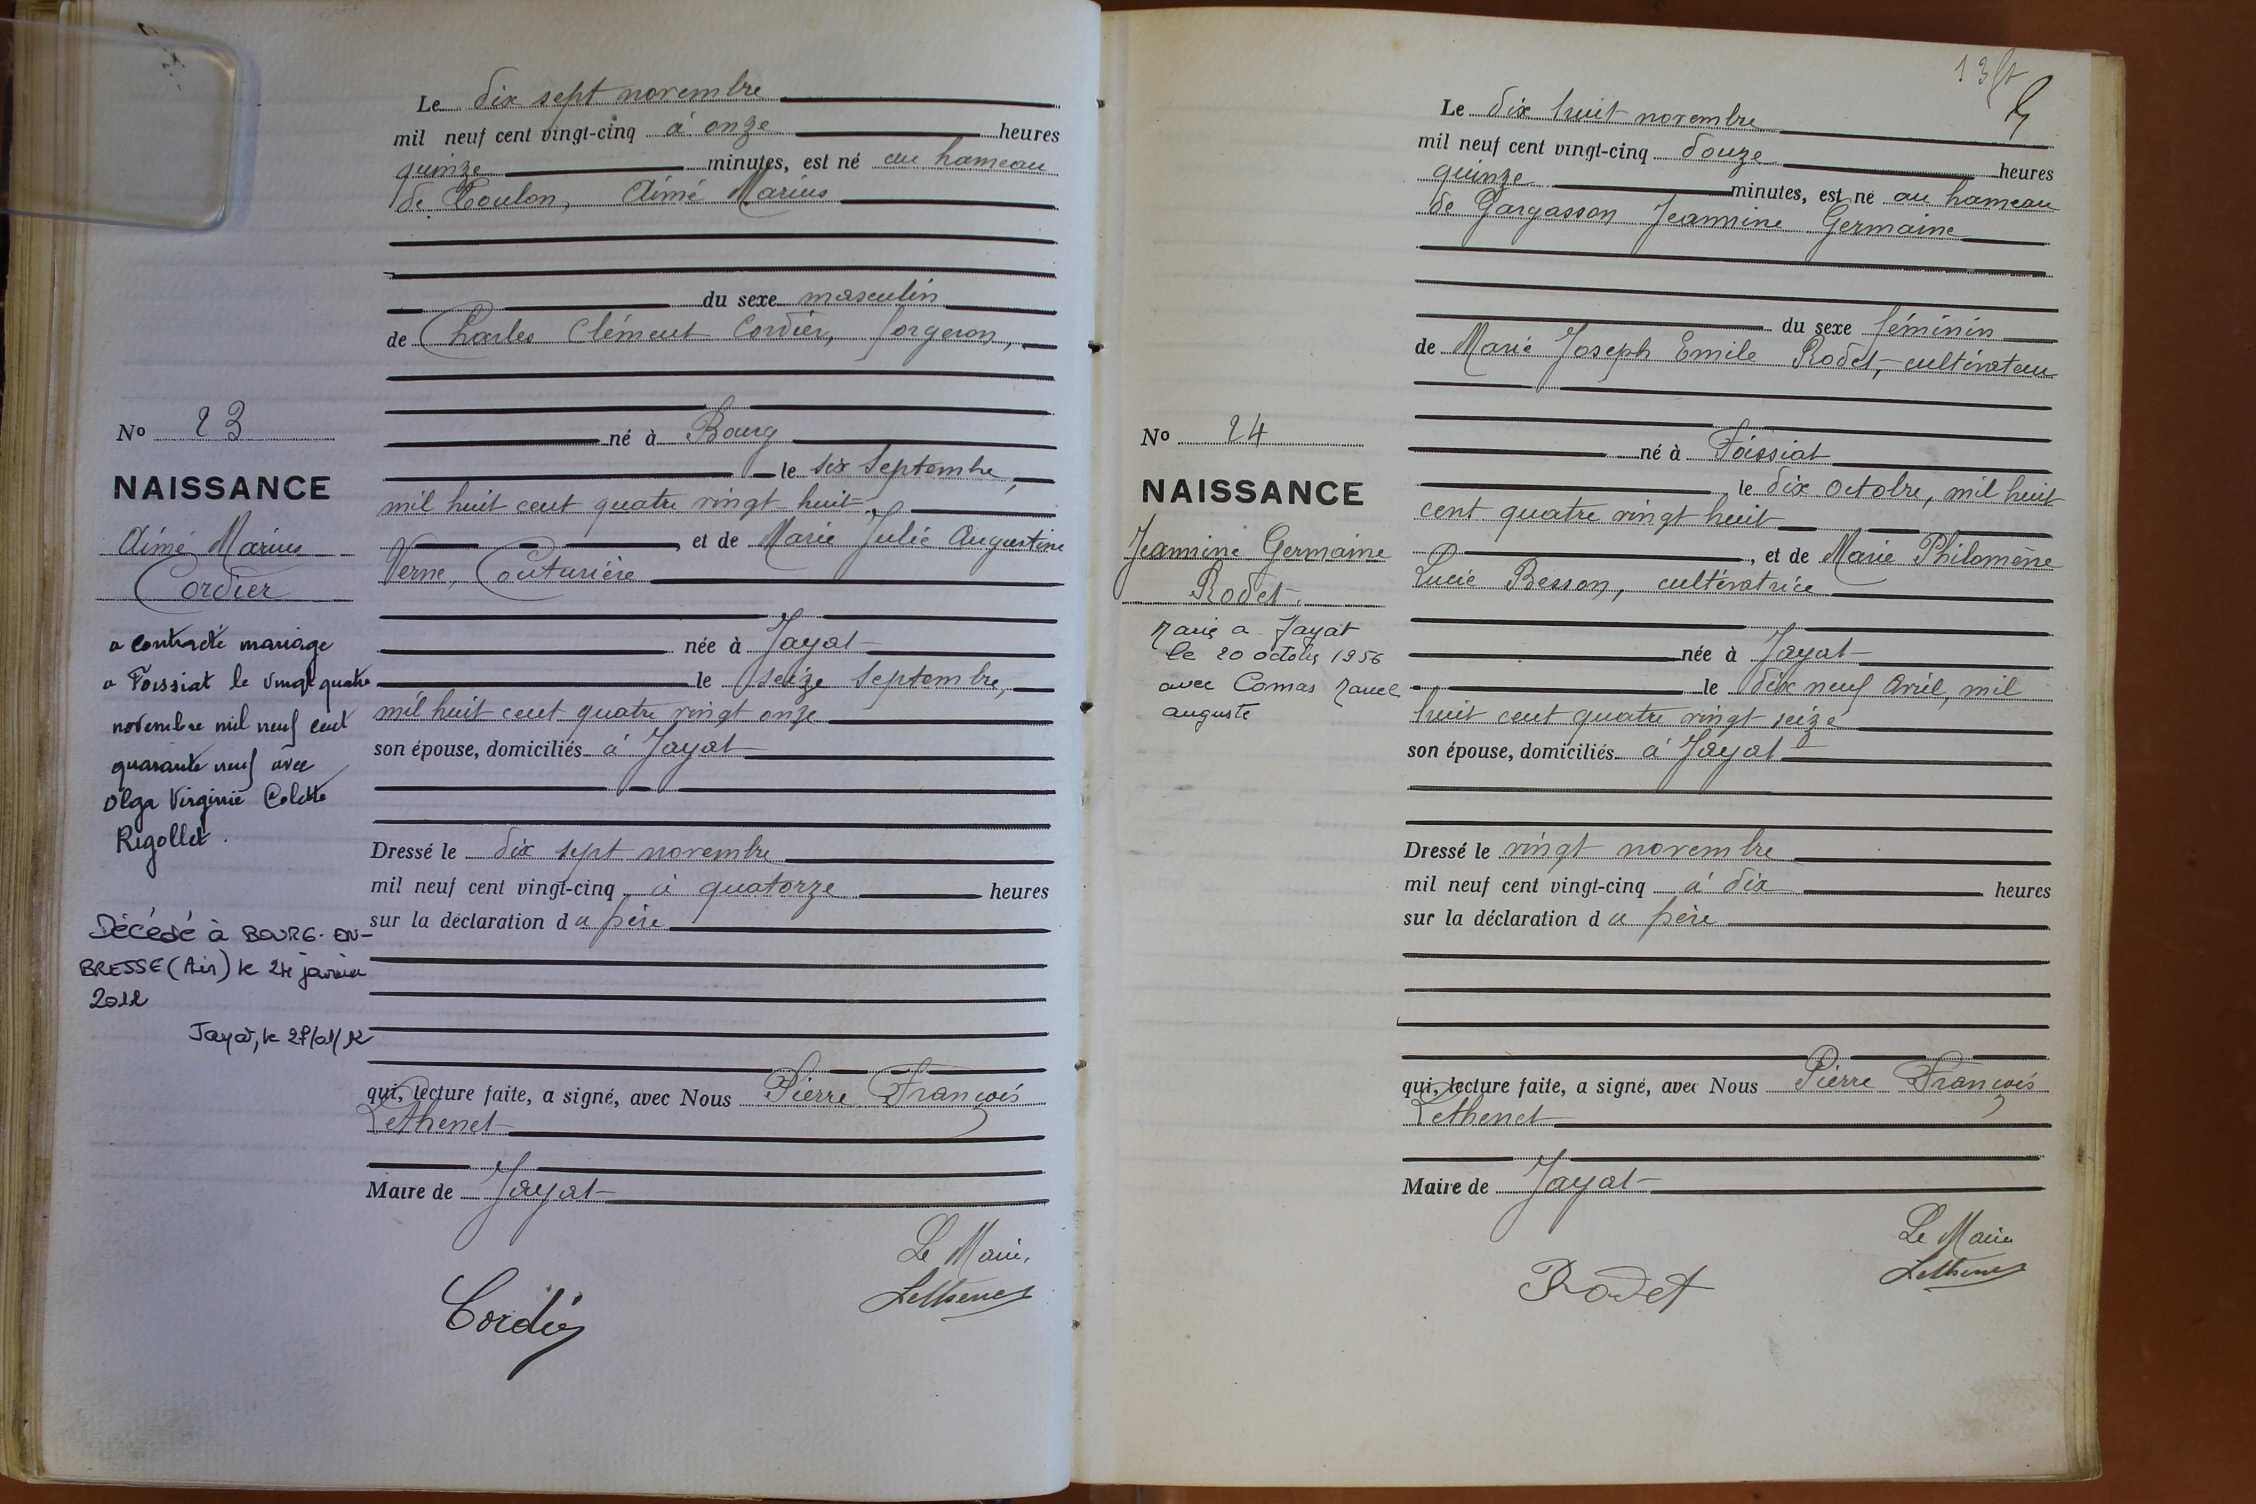 Le dix sept novembre
mil neuf cent vingt-cinq à onze heures
quinze minutes, est né au hameau
de Toulon, Aimé Marius
du sexe masculin
de Charles Clément Cordier, forgeron,
né à Bourg
le six Septembre,
mil huit cent quatre vingt-huit
et de Marie Julie Augustine
Verne, Couturière
née à Jayat
le seize Septembre,
mil huit cent quatre vingt onze
son épouse, domiciliés à Jayat
Dressé le dix sept novembre
mil neuf cent vingt-cinq à quatorze heures
sur la déclaration du père
qui, lecture faite, a signé, avec Nous Pierre François
Lethenet
Maire de Jayat
Le Maire,
Lethenet
Cordier
No 23
NAISSANCE
Aimé Marius
Cordier
a contracté mariage
a Foissiat le vingt quatre
novembre mil neuf cent
quarante neuf avec
Olga Virginie Colette
Rigollet.
Décédé à BOURG-EN-
BRESSE (Ain) le 24 janvier
2012
Jayat, le
Le dix huit novembre
mil neuf cent vingt-cinq douze heures
quinze minutes, est né au hameau
de Gargasson Jeannine Germaine
du sexe féminin
de Marie Joseph Emile Rodet, cultivateur
né à Foissiat
le dix Octobre, mil huit
cent quatre vingt huit
, et de Marie Philomène
Lucie Besson, cultivatrice
née à Jayat
le dix neuf Avril, mil
huit cent quatre vingt seize
son épouse, domiciliés à Jayat
Dressé le vingt novembre
mil neuf cent vingt-cinq à dix heures
sur la déclaration du père
qui, lecture faite, a signé, avec Nous Pierre François
Lethenet
Maire de Jayat
Le Maire
Lethenet
Rodet
No 24
NAISSANCE
Jeannine Germaine
Rodet
Marié a Jayat
le 20 octobre 1956
avec Comas Marcel
auguste